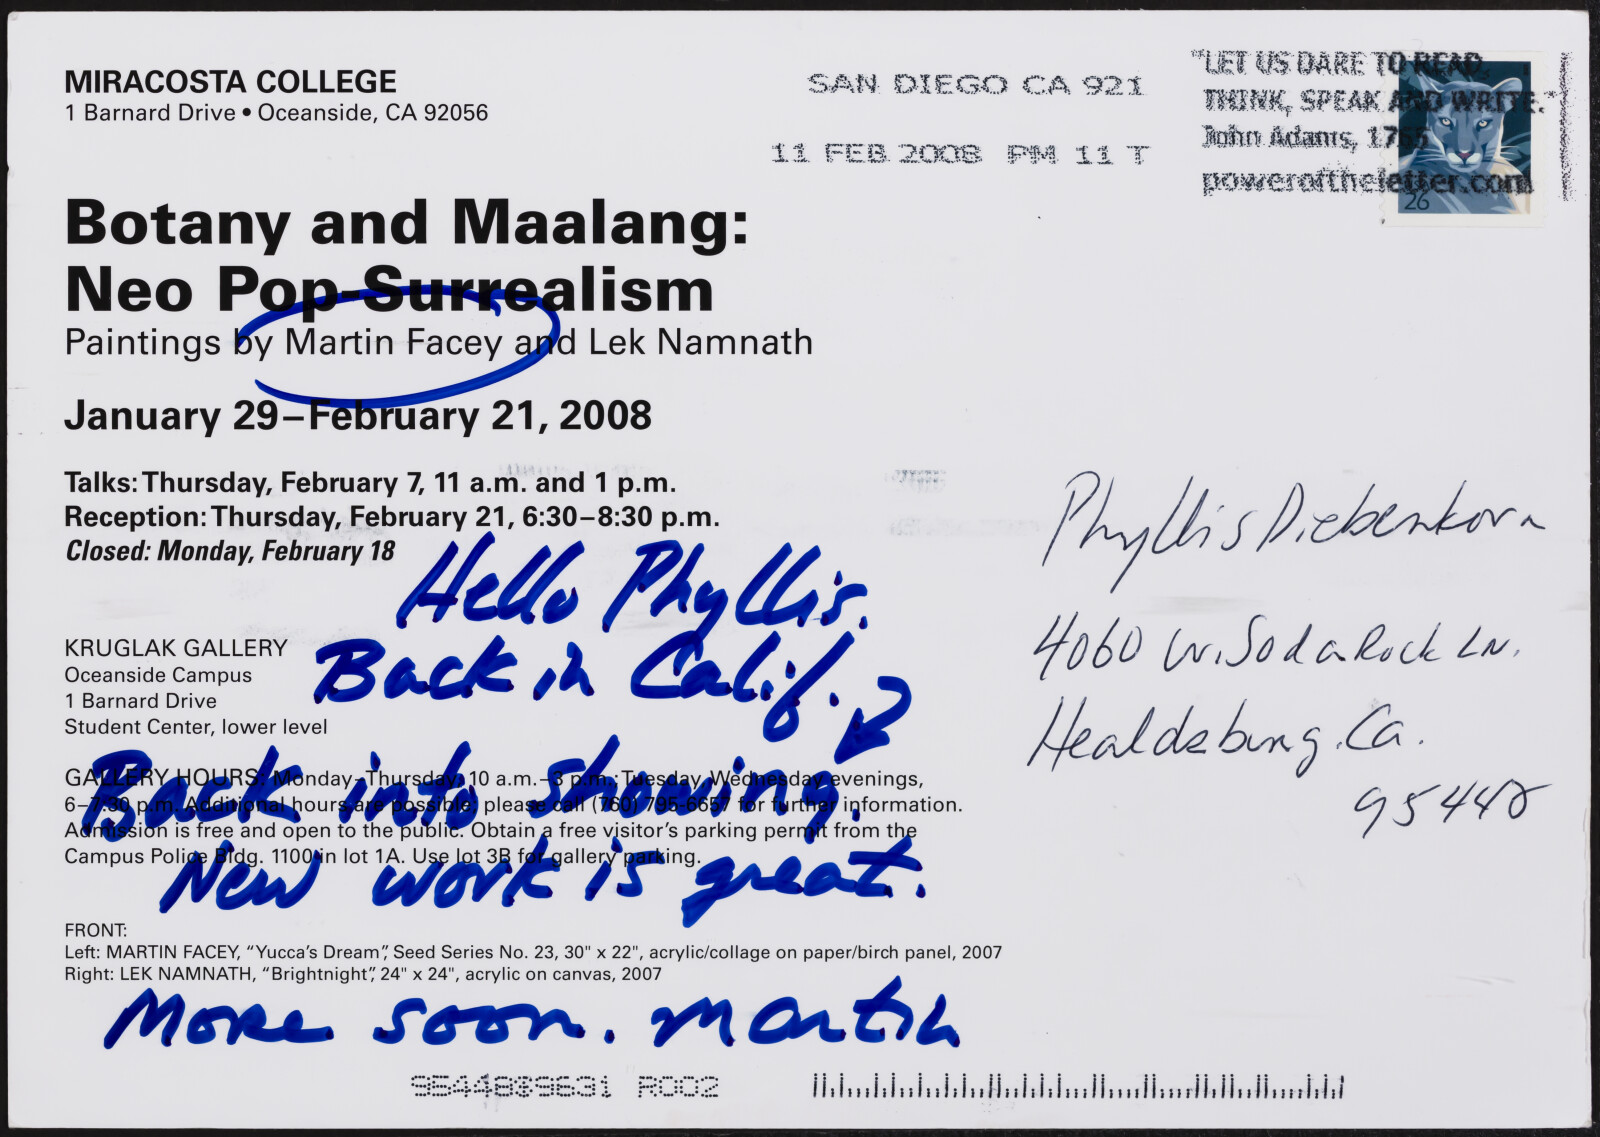 MIRACOSTA COLLEGE
1 Barnard Drive • Oceanside, CA 92056
SAN DIEGO CA 921
11 FEB 2008 PM 11 T
"LET US DARE TO READ
THINK, SPEAK AND WRITE."
John Adams, 1765
poweroftheletter.com
26
Botany and Maalang:
Neo Pop-Surrealism
Paintings by Martin Facey and Lek Namnath
January 29–February 21, 2008
Talks: Thursday, February 7, 11 a.m. and 1 p.m.
Reception: Thursday, February 21, 6:30–8:30 p.m.
Closed: Monday, February 18
Hello Phyllis.
Back in Calif.
Back into showing.
New work is great.
More soon. Martin
KRUGLAK GALLERY
Oceanside Campus
1 Barnard Drive
Student Center, lower level
GALLERY HOURS: Monday–Thursday, 10 a.m.–3 p.m.; Tuesday, Wednesday evenings,
6–7:30 p.m. Additional hours are possible, please call (760) 795-6657 for further information.
Admission is free and open to the public. Obtain a free visitor's parking permit from the
Campus Police Bldg. 1100 in lot 1A. Use lot 3B for gallery parking.
FRONT:
Left: MARTIN FACEY, "Yucca's Dream", Seed Series No. 23, 30" x 22", acrylic/collage on paper/birch panel, 2007
Right: LEK NAMNATH, "Brightnight", 24" x 24", acrylic on canvas, 2007
Phyllis Diebenkorn
4060 W. Soda Rock LN.
Healdsburg, Ca.
95448
R002